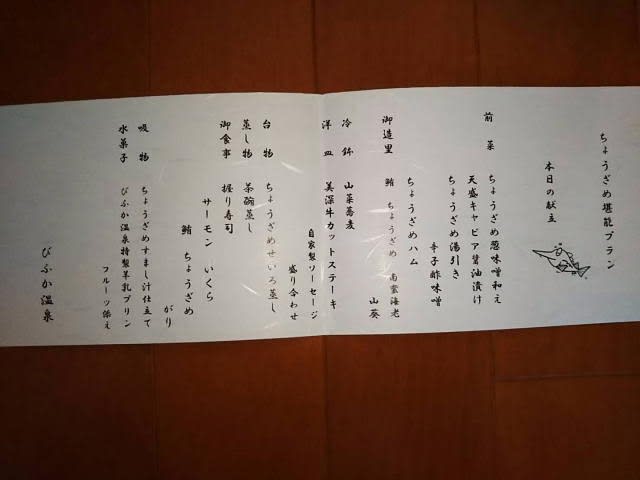 ちょうざめ堪能プラン
本日の献立
前菜　ちょうざめ葱味噌和え
天盛キャビア醤油漬け
ちょうざめ湯引き
辛子酢味噌
ちょうざめハム
御造里　鮪　ちょうざめ　南蛮海老
山葵
冷鉢　山菜蕎麦
洋皿　美深牛カットステーキ
自家製ソーセージ
盛り合わせ
台物　ちょうざめせいろ蒸し
蒸し物　茶碗蒸し
御食事　握り寿司
サーモン　いくら
鮪　ちょうざめ
がり
吸物　ちょうざめすまし汁仕立て
水菓子　びふか温泉特製羊乳プリン
フルーツ添え
びふか温泉